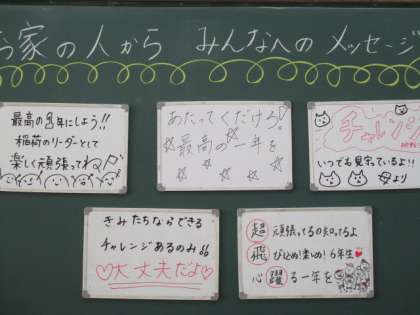 お家の人から みんなへの メッセージ
最高の1年にしよう!!
稲荷のリーダーとして
楽しく頑張ってね
あたってくだけろ!
最高の一年を
チャレンジ
いつでも見守っているよ!!
母より
きみたちならできる
チャレンジあるのみ!!
大丈夫だよ
超 頑張ってるの知ってるよ
飛びこめ!楽しめ!6年生
心躍る一年を